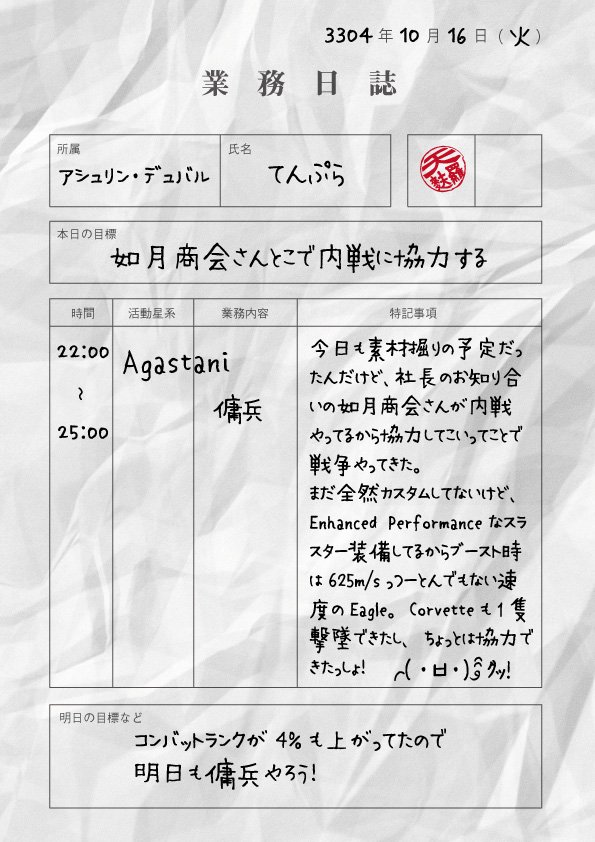 3304 年 10 月 16 日 ( 火 )
業務日誌
所属
氏名
アシュリン・デュバル
てんぷら
天
麩羅
本日の目標
如月商会さんとこで内戦に協力する
時間 活動星系 業務内容 特記事項
22:00
~
25:00
Agastani
傭兵
今日も素材掘りの予定だっ
たんだけど、社長のお知り合
いの如月商会さんが内戦
やってるから協力してこいってことで
戦争やってきた。
まだ全然カスタムしてないけど、
Enhanced Performance なスラ
スター装備してるからブースト時
は 625m/s っつーとんでもない速
度の Eagle。 Corvette も 1 隻
撃墜できたし、 ちょっとは協力で
きたっしょ!
明日の目標など
コンバットランクが 4% も上がってたので
明日も傭兵やろう!